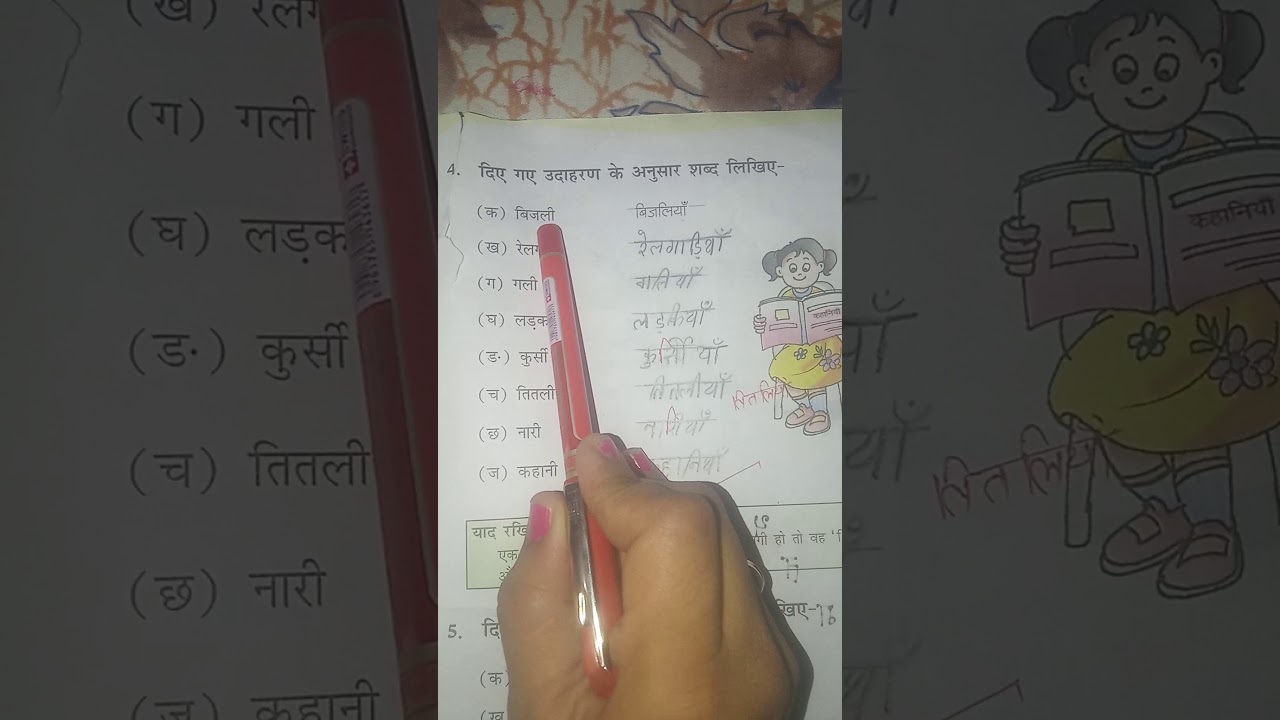 4. दिए गए उदाहरण के अनुसार शब्द लिखिए-
(क) बिजली बिजलियाँ
(ख) रेलग रेलगाड़ियाँ
(ग) गली गलियाँ
(घ) लड़क लड़कीयाँ
(ङ) कुर्सी कुर्सियाँ
(च) तितली तितलीयाँ तितलिय
(छ) नारी नारियाँ
(ज) कहानी हानियाँ
कहानियाँ
याद रखि गी हो तो वह
एक
5. दि खिए-
(क)
(ख